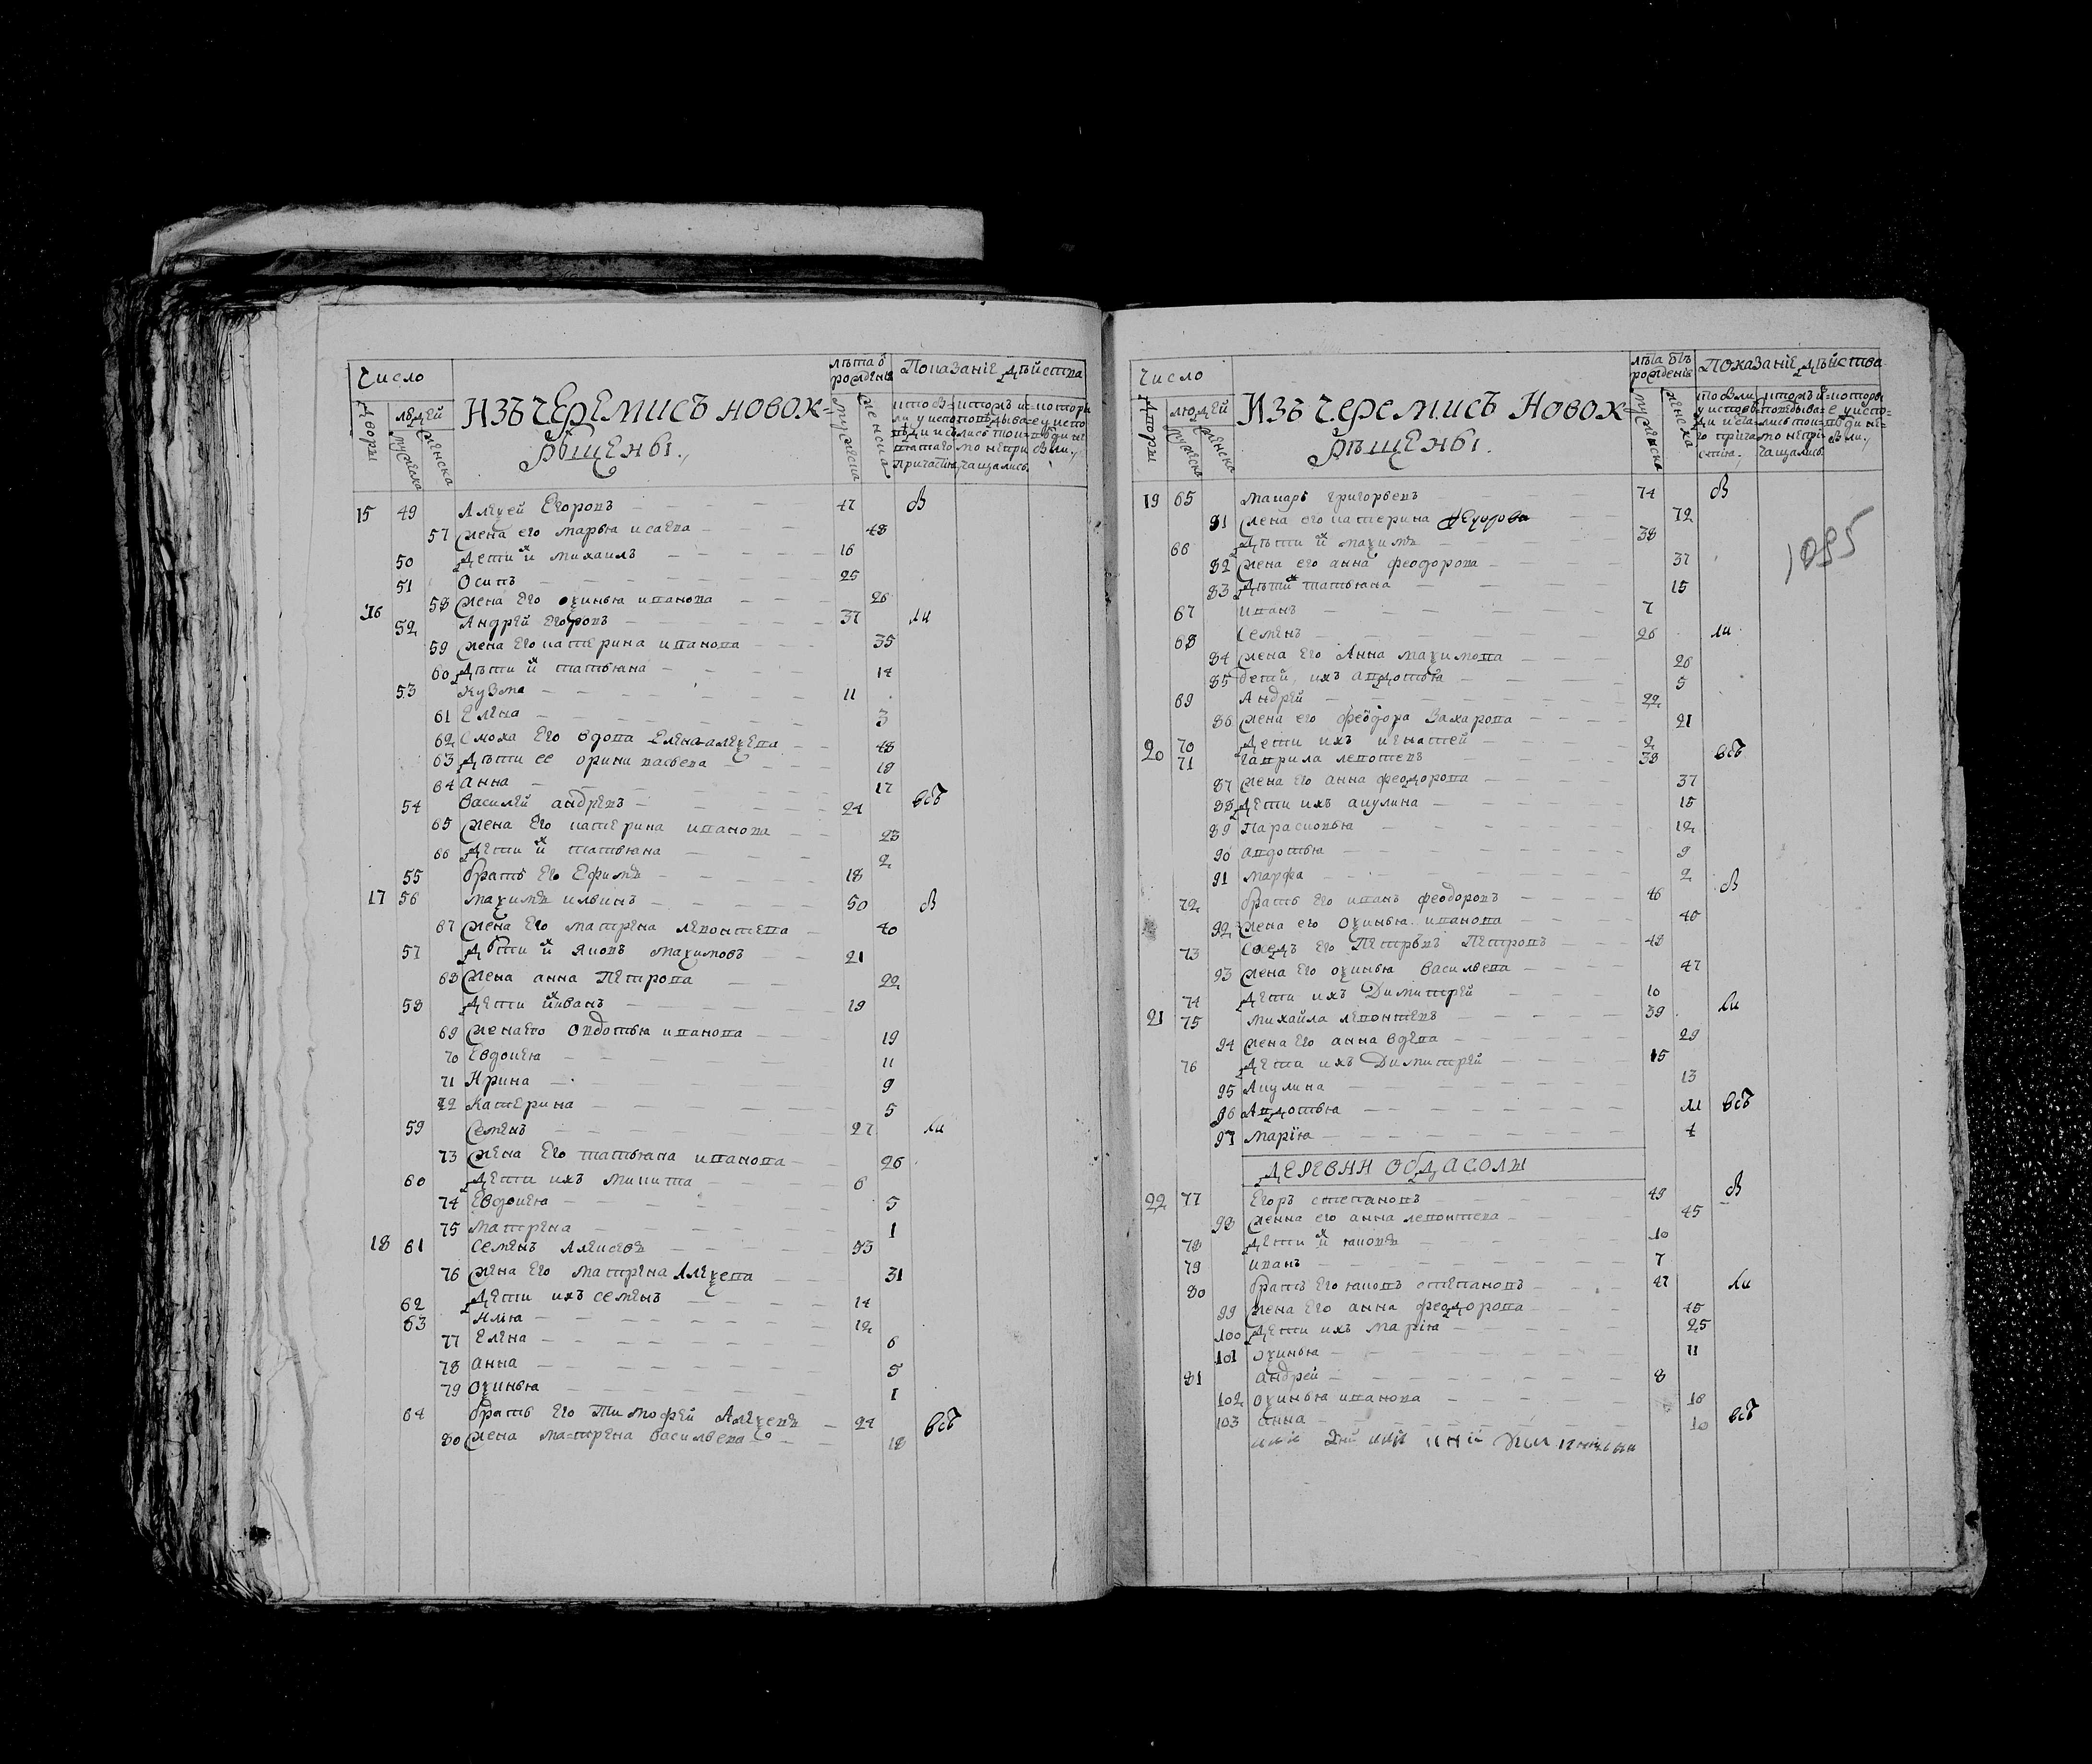 Число
людей
Дворы
мужеска
женска
Изъ черемисъ новок=
рѣщены.,
лѣта ѿ рожденія
мужеска
женска
Показаніе дѣйства
15 49 Алѯей Егоровъ 47 в
57 жена его марья исаева 48
50 Дети их михаилъ 16
51 Осипъ 25
58 жена Его оѯинья иванова 26
16 52 Андрей егоровъ 37 ли
59 жена Его катерина иванова 35
60 Дѣти их татьяна 14
53 кузма 11
61 Елена 3
62 сноха Его вдова елена алеѯева 48
63 Дѣти ее орина 19
64 анна 17
54 Василей андревъ 24 всѣ
65 жена Его катерина иванова 23
66 Дети их татьяна 2
55 братъ Его Ефимъ 18
17 56 маѯимъ ильинъ 50 в
67 жена Его матрена левонтева 40
57 Дѣти их яковъ маѯимовъ 21
68 жена анна Петрова 22
58 Дети их иванъ 19
69 жена его овдотья иванова 19
70 Евдокея 11
71 Ирина 9
72 Катерина 5
59 Семенъ 27 ли
73 жена Его татьяна иванова 26
60 Дети ихъ микита 6
74 Евдокея 5
75 матрена 1
18 61 Семенъ Алексевъ 53
76 жена Его матрена Алеѯева 31
62 Дети ихъ семенъ 14
63 илья 12
77 Елена 6
78 анна 5
79 оѯинья 1
64 братъ Его Тимофей Алеѯевъ 24 всѣ
80 жена ма=трена васильева 18
Число
людей
Дворы
мужеска
женска
Изъ черемисъ Новок
рѣщены.
лѣта ѿъ рожденія
мужеска
женска
Показаніе дѣйства
1095
19 65 макаръ григорьевъ 74 в
81 жена его катерина федорова 72
66 Дѣти их маѯимъ 38
82 жена его анна феодорова 37
83 Дѣти их татьяна 15
67 иванъ 7
68 Семенъ 26 ли
84 жена Его Анна маѯимова 26
85 дети ихъ авдотья 5
69 Андрей 22
86 жена его феодора захарова 21
70 Дети ихъ игнатей 2
20 71 гаврила левонтевъ 38 всѣ
87 жена Его анна феодорова 37
88 Дети ихъ акулина 15
89 Парасковья 12
90 авдотья 9
91 марфа 2
72 братъ Его иванъ феодоровъ 46 в
92 жена его оѯинья иванова 40
73 Его Петровъ 48
93 жена Его оѯинья васильева 47
74 Дети ихъ Димитрей 10
21 75 михайла левонтевъ 39 ли
94 жена Его анна 29
76 Дети ихъ Димитрей 15
95 Акулина 13
96 Авдотья 11 всѣ
97 марія 4
Деревни Обдасолы
22 77 Егоръ степановъ 49 в
98 женна его анна левонтева 45
78 Дети их яковъ 10
79 иванъ 7
80 братъ Его яковъ степановъ 47 ли
99 жена Его анна феодорова 45
100 Дети ихъ марія 25
101 оѯинья 11
81 андрей 8
102 оѯинья иванова 18
103 анна 10 всѣ